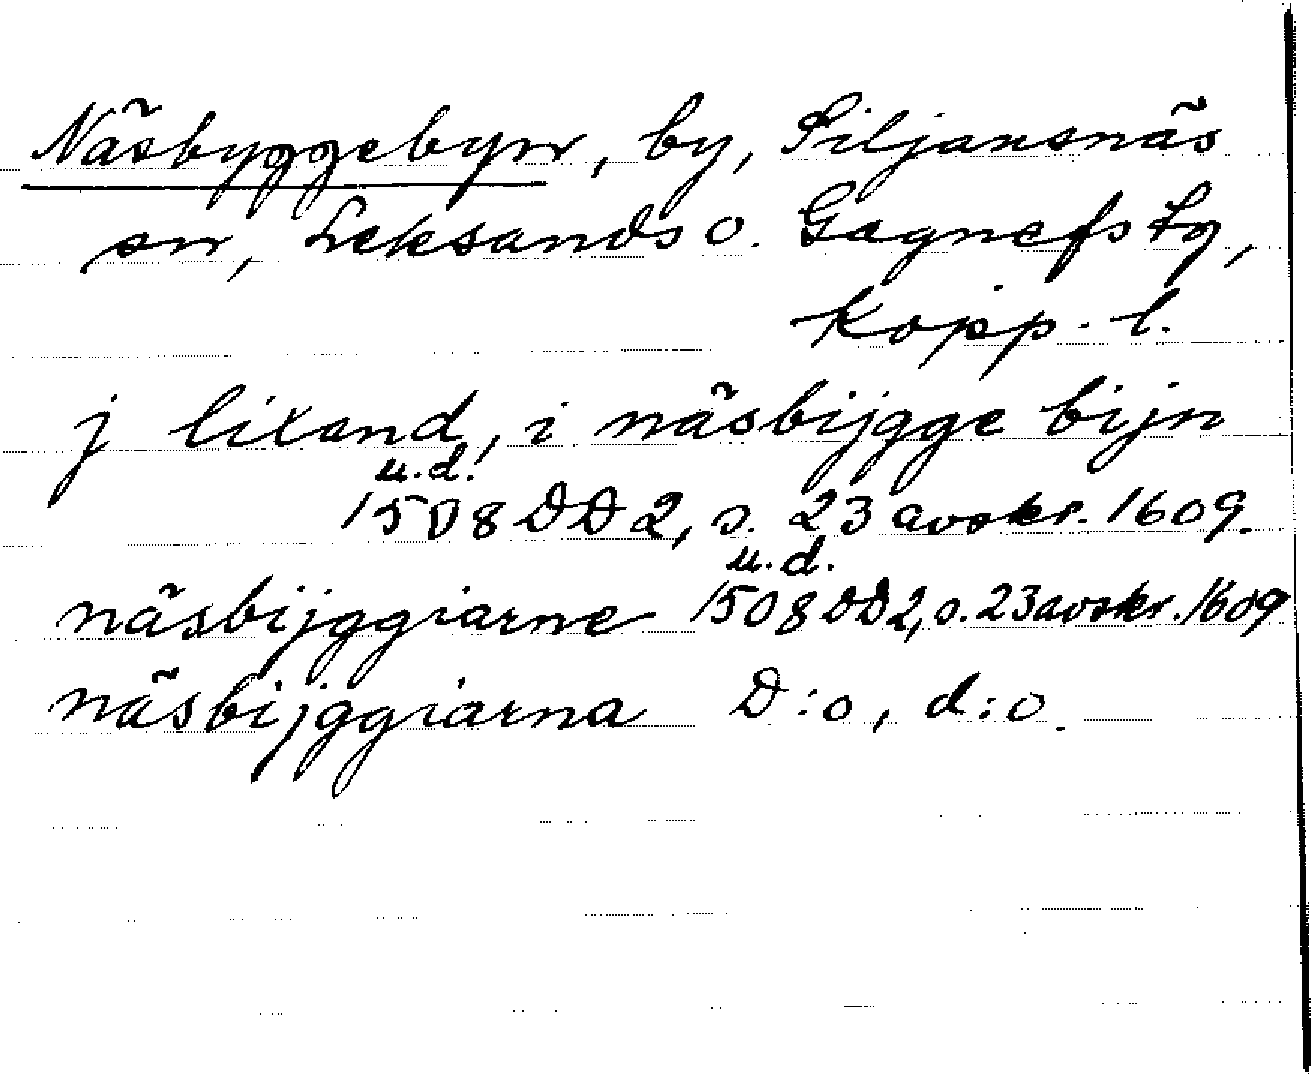 Näsbyggebyn, by, Siljansnäs
sn, Leksands o. Gagnefs tg,
Kopp. l.
j lixand, i näsbijgge bijn
u.d.
1508 DD 2, s. 23 avskr. 1609.
u.d.
näsbijggiarne 1508 DD 2, s. 23 avskr. 1609
näsbijggiarna D:o, d:o.